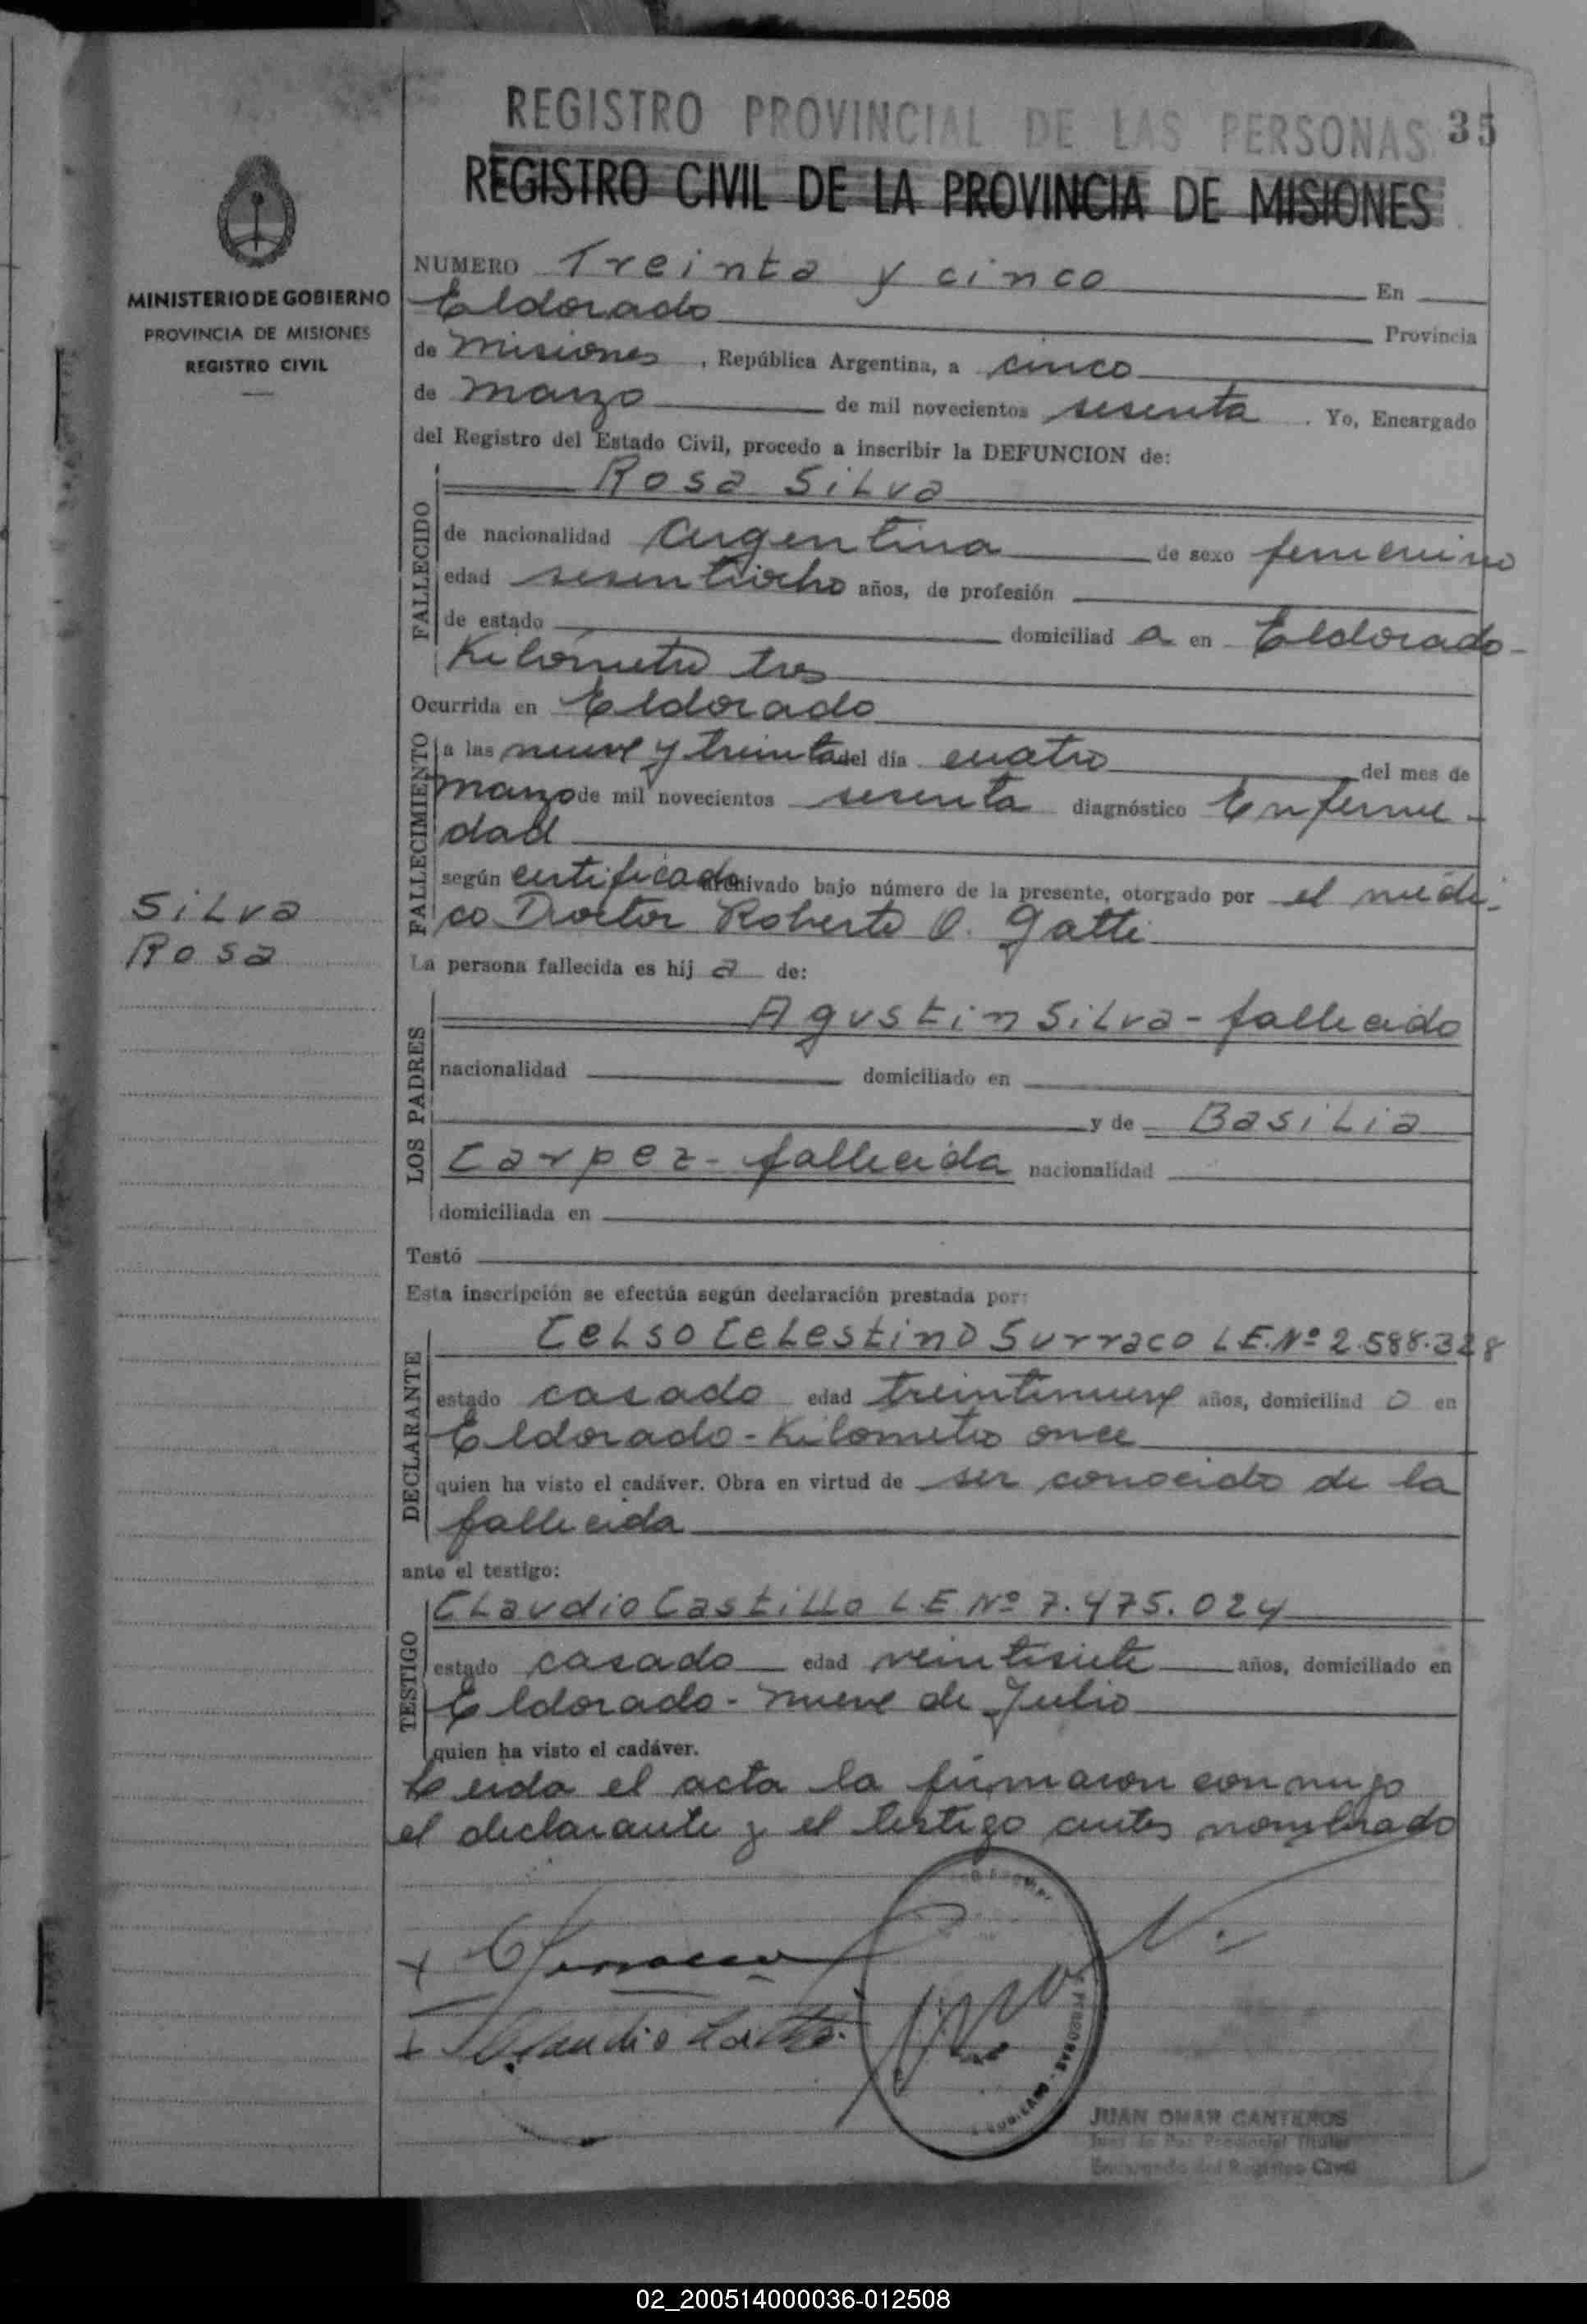 REGISTRO PROVINCIAL DE LAS PERSONAS 35
REGISTRO CIVIL DE LA PROVINCIA DE MISIONES
MINISTERIO DE GOBIERNO
PROVINCIA DE MISIONES
REGISTRO CIVIL
NUMERO Treinta y cinco En
Eldorado Provincia
de Misiones, República Argentina, a cinco
de marzo de mil novecientos sesenta. Yo, Encargado
del Registro del Estado Civil, procedo a inscribir la DEFUNCION de:
FALLECIDO
Rosa Silva
de nacionalidad argentina de sexo femenino
edad sesentiocho años, de profesión
de estado domiciliad a en Eldorado-
Kilómetro tres
Ocurrida en Eldorado
FALLECIMIENTO
a las nueve y treinta del día cuatro del mes de
marzo de mil novecientos sesenta diagnóstico Enferme-
dad
según certificado archivado bajo número de la presente, otorgado por el médi-
co Doctor Roberto O. Gatti
Silva
Rosa
La persona fallecida es hij a de:
LOS PADRES
Agustin Silva - fallecido
nacionalidad domiciliado en
y de Basilia
Carpez - fallecida nacionalidad
domiciliada en
Testó
Esta inscripción se efectúa según declaración prestada por:
DECLARANTE
Celso Celestino Surraco L.E. Nº 2.588.328
estado casado edad treintinueve años, domiciliad o en
Eldorado - Kilometro once
quien ha visto el cadáver. Obra en virtud de ser conocido de la
fallecida
ante el testigo:
TESTIGO
Claudio Castillo L.E. Nº 7.475.024
estado casado edad veintisiete años, domiciliado en
Eldorado - nueve de Julio
quien ha visto el cadáver.
Leida el acta la firmaron conmigo
el declarante y el testigo antes nombrado
JUAN OMAR CANTEROS
Juez de Paz Provincial Titular
Encargado del Registro Civil
02_200514000036-012508